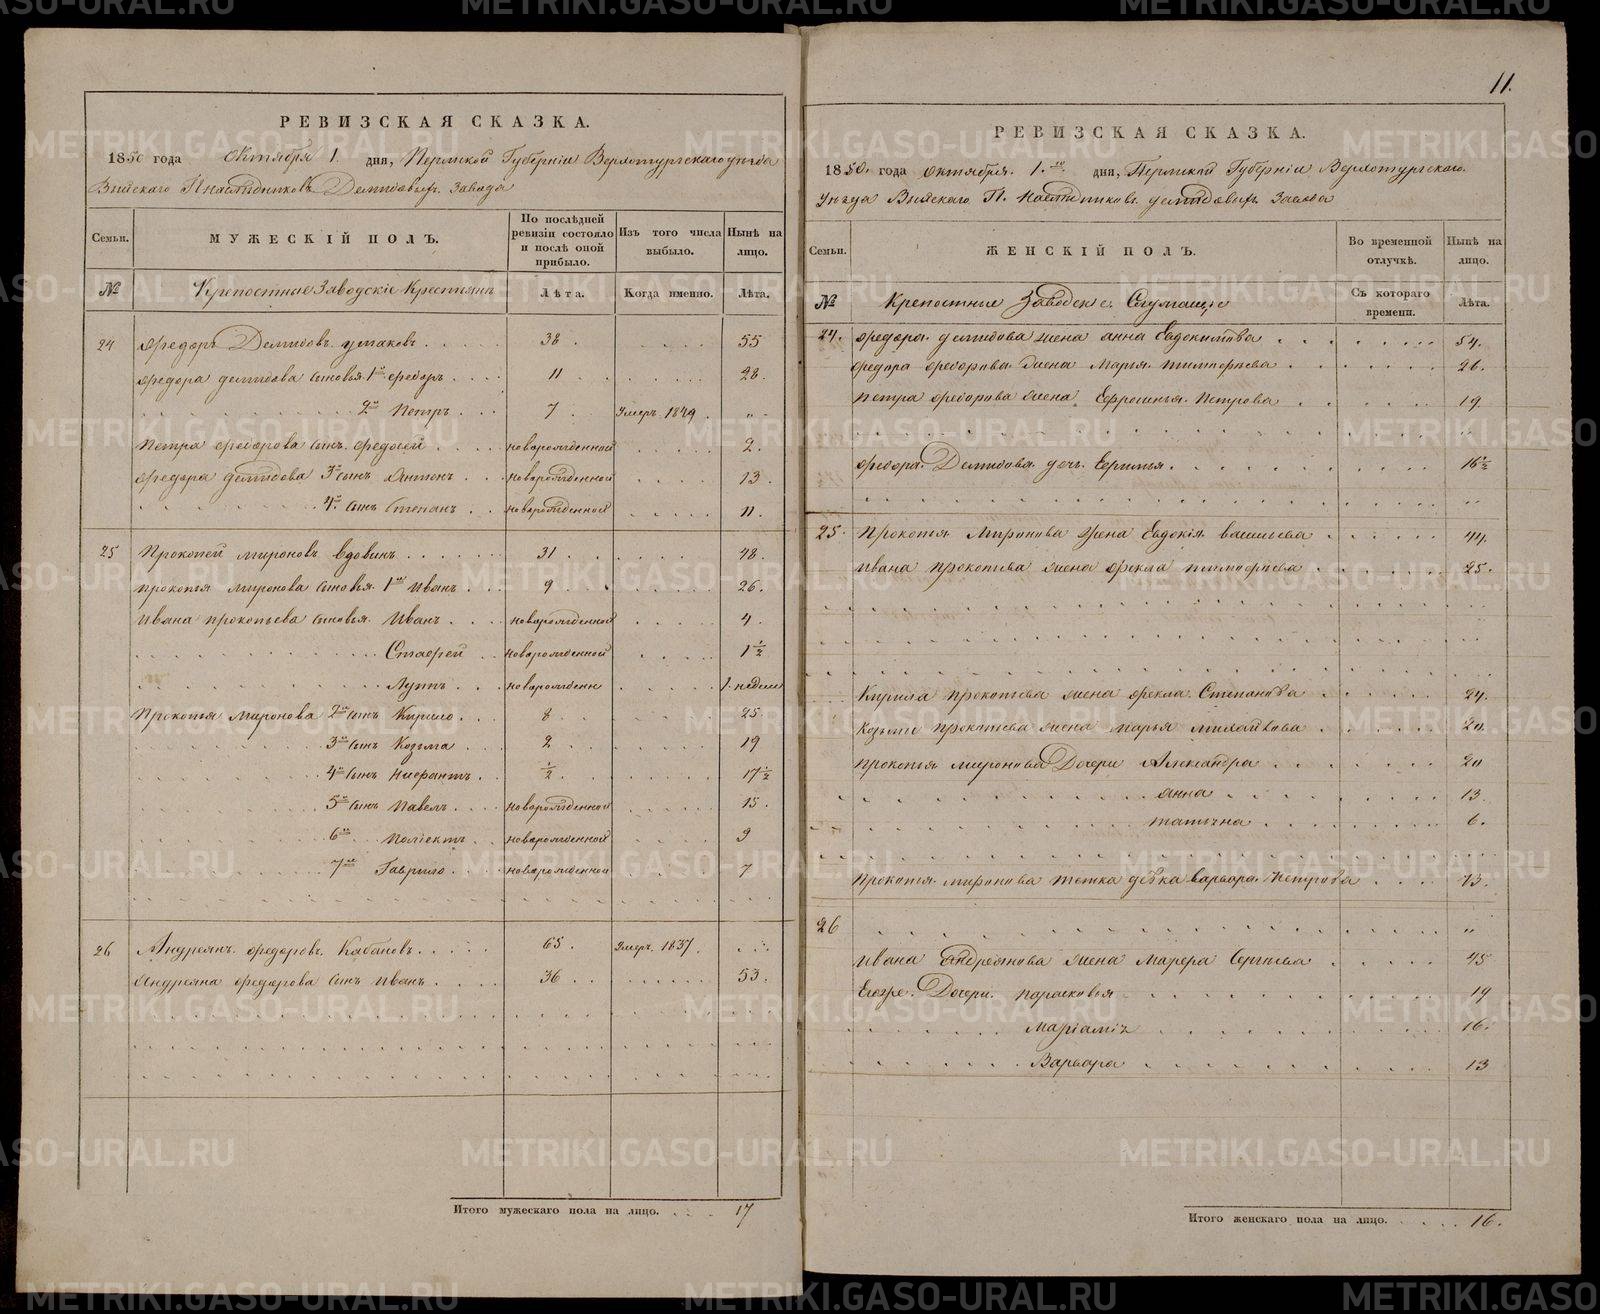 11.
РЕВИЗСКАЯ СКАЗКА.
1850 года октября 1. дня, Пермской Губерніи Верхотурскаго уезда
Выйскаго Гп наследниковъ Демидовыхъ завода
Семьи.
МУЖЕСКІЙ ПОЛЪ.
По послѣдней ревизіи состояло и послѣ оной прибыло.
Изъ того числа выбыло.
Нынѣ на лицо.
№ Крепостные Заводскіе Крестьянъ Лѣта. Когда именно. Лѣта.
24 Федоръ Демидовъ ушаковъ 38. 55
Федора демидова сыновья 1й федоръ 11 28.
2й Петръ 7 Умеръ 1849. "
Петра федорова сынъ федосей новорожденной 2.
Федора демидова 3й сынъ Антонъ новорожденной 13.
4й сынъ Степанъ новорожденной 11.
25 Прокопей мироновъ вдовинъ 31. 48.
прокопья миронова сыновья 1й иванъ 9 26.
Ивана прокопьева сыновья Иванъ новорожденной 4.
Стафей новорожденной 1 1/2
Лупъ новорожденн 1. недели
Прокопья миронова 2й сынъ Кирило 8 25.
3й сынъ Козьма 2 19
4й сынъ Нифантъ 1/2 17 1/2
5й сынъ Павелъ новорожденной 15.
6й Поліектъ новорожденной 9
7й Гаврило новорожденной 7
26 Андреянъ федоровъ Кабановъ 65. Умеръ 1837.
Андреяна федорова сынъ иванъ 36 53.
Итого мужескаго пола на лицо. 17
РЕВИЗСКАЯ СКАЗКА.
1850. года октября. 1.го дня, Пермской Губерніи Верхотурскаго.
Уезда Выйскаго Гп. наследниковъ демидовыхъ Завода
Семьи.
ЖЕНСКІЙ ПОЛЪ.
Во временной отлучкѣ.
Нынѣ на лицо.
№ Крепостные Заводскіе Служащіе Съ котораго времени. Лѣта.
24. Федора демидова жена анна Евдокимова 54.
Федора федорова жена Марья тимофеева 26.
Петра федорова жена Ефросинья Петрова 19
Федора Демидова дочь Ефимья 16 1/2
25. Прокопья Миронова жена Евдокія васильева 44.
Ивана прокопьева жена фекла тимофеева 25.
Кирила прокопьева жена фекла Степанова 24.
Козьмы прокопьева жена марья михайлова 20.
Прокопья миронова Дочери Александра 20
анна 13
татьяна 6.
Прокопья миронова тетка девка варвара Петрова 73.
26 "
Ивана андреянова жена Марфа Сергеева 45
Егоже Дочери парасковья 19
Маріамія 16.
Варвара 13
Итого женскаго пола на лицо. 16.
METRIKI.GASO-URAL.RU